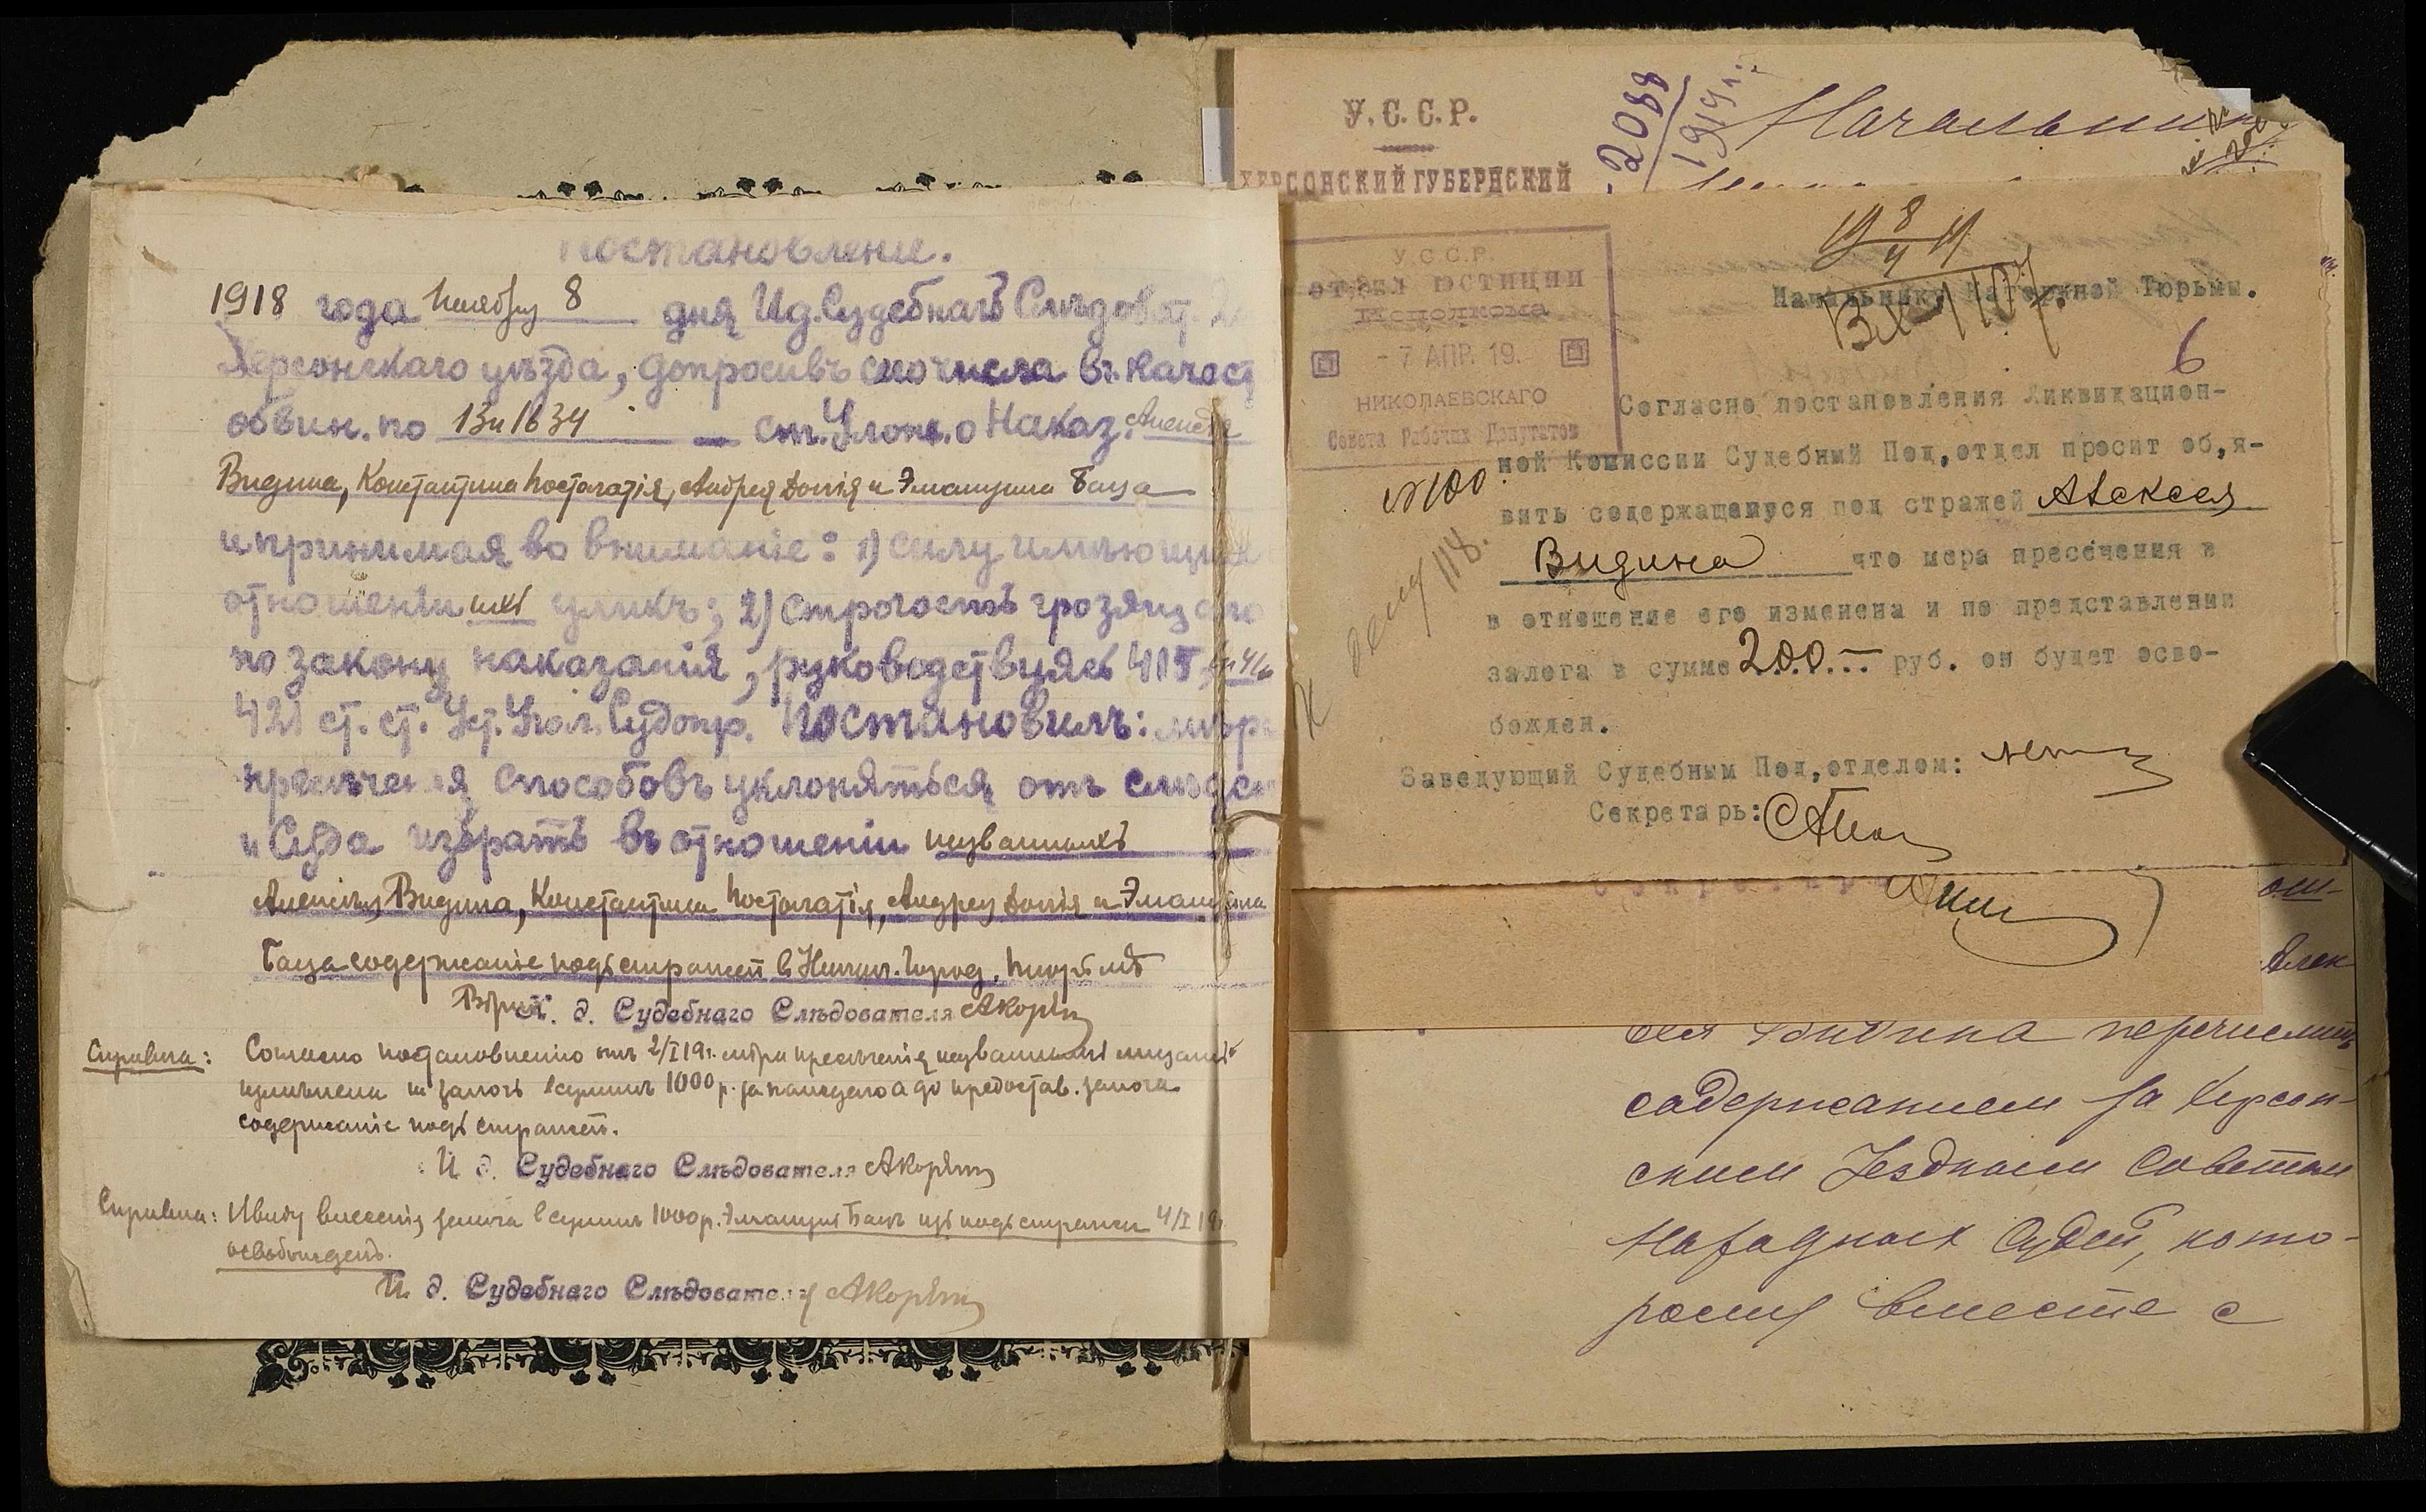 Постановленіе.
1918 года Ноября 8 дня И.д. Судебнаго Слѣдоват.
Херсонскаго уѣзда, допросивъ сего числа въ качест
обвин. по 13 и 1634 ст. Улож. о Наказ. Алексѣя
Видина, Константина Посталатія, Андрея Допія и Эмануила Баца
и принимая во вниманіе: 1) силу имѣющихся
отношеніи ихъ уликъ; 2) строгость грозящаго
по закону наказанія, руководствуясь 415, 416
421 ст. ст. Уст. Угол. Судопр. Постановилъ: мѣрою
пресѣченія способовъ уклоняться отъ слѣдст
и Суда избрать въ отношеніи названныхъ
Алексѣя Видина, Константина Посталатія, Андрея Допія и Эмануила
Баца содержаніе подъ стражей в Тюрьмѣ
Вѣрно: И. д. Судебнаго Слѣдователя
Справка: Согласно постановленію отъ 2/I 19 г. мѣра пресѣченія названнымъ лицамъ
измѣнена на залогъ в суммѣ 1000 р. за каждаго а до предостав. залога
содержаніе подъ стражей.
И. д. Судебнаго Слѣдователя
Справка: Ввиду внесенія залога в суммѣ 1000 р. Эмануилъ Бацъ изъ подъ стражи 4/I 19 г.
освобожденъ.
И. д. Судебнаго Слѣдователя
У.С.С.Р.
ХЕРСОНСКИЙ ГУБЕРНСКИЙ
2088
1919 г.
Начальник
У.С.С.Р.
ОТДЕЛ ЮСТИЦИИ
Исполкома
- 7 АПР. 19.
НИКОЛАЕВСКАГО
Совета Рабочих Депутатов
№ 100
К делу 118.
19 8/4 19
Вх 1107
Начальнику Каторжной Тюрьмы.
6
Согласно постановления Ликвидацион-
ной Комиссии Судебный Под,отдел просит об,я-
вить содержащемуся под стражей Алексея
Видина что мера пресечения в
в отношение его изменена и по представлении
залога в сумме 200.-- руб. он будет осво-
божден.
Заведующий Судебным Под,отделом:
Секретарь:
Секретарь
ош-
Алек
сея Видина перечислить
содержанием за Херсон-
ским Уездным Советом
Народных Судей, кото-
рому вместе с